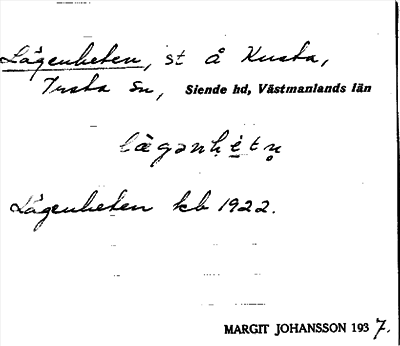 Lägenheten, st å Kusta,
Irsta sn, Siende hd, Västmanlands län
lägənhe̠tn̥
Lägenheten kb 1922.
MARGIT JOHANSSON 1937.